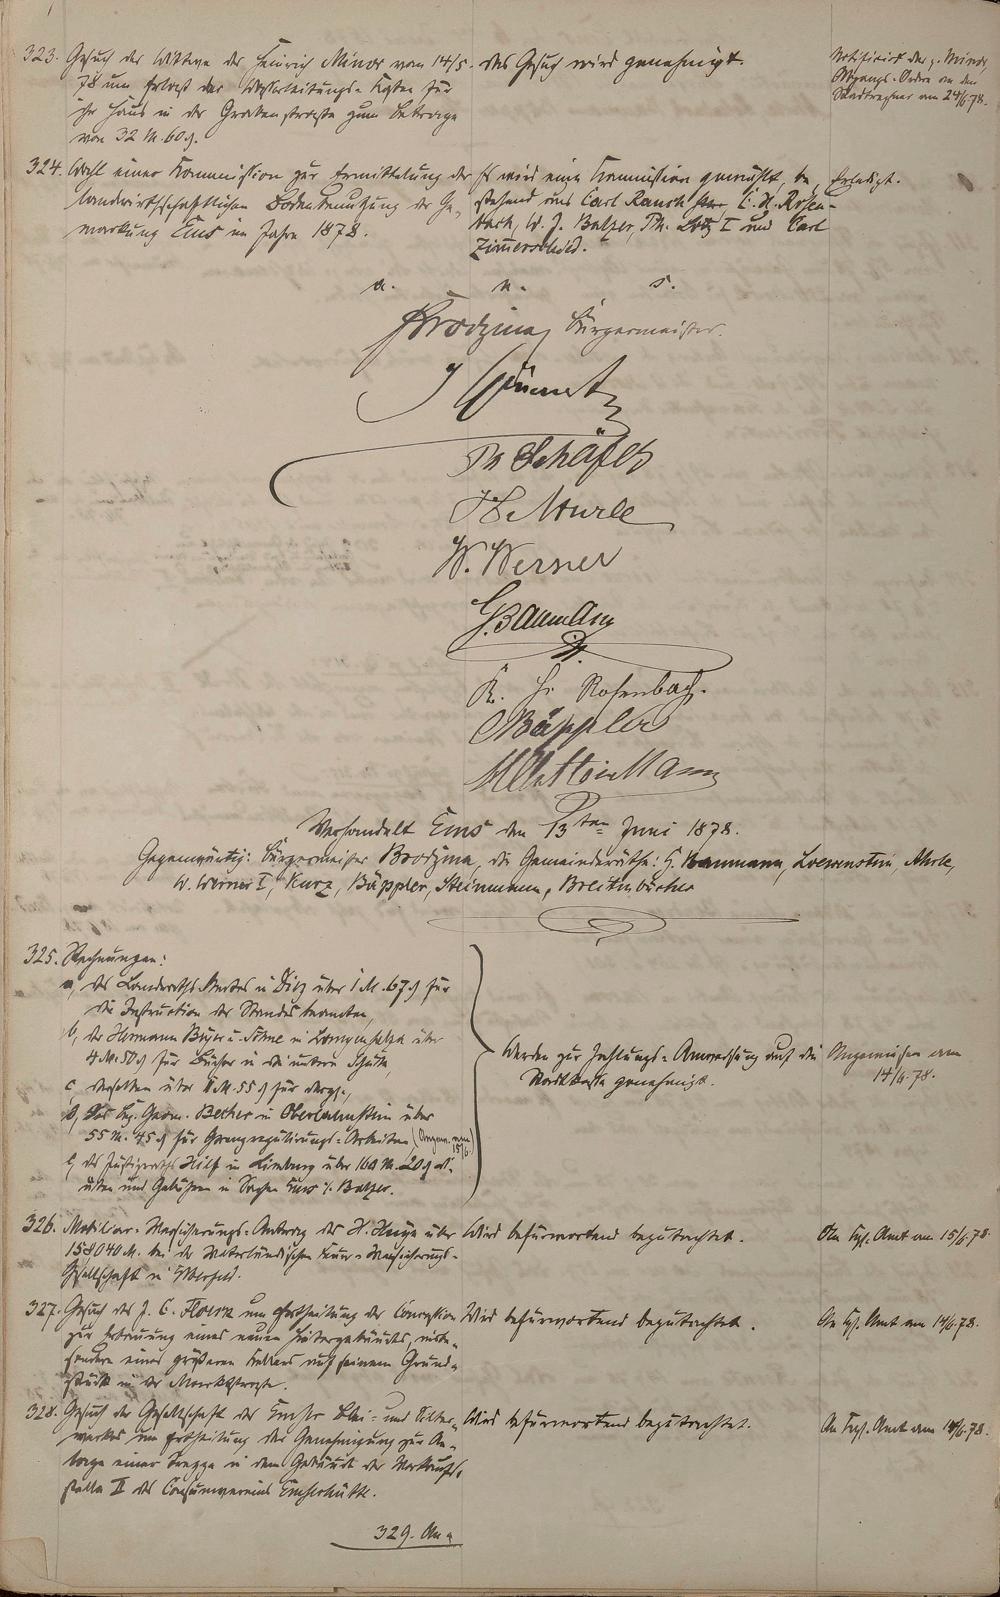 323. Gesuch der Wittwe des Heinrich Minor vom 14/5.
78 um Erlaß der Wasserleitungs-Kosten für
ihr Haus in der Grabenstraße zum Betrage
von 32 M. 60 ₰.
das Gesuch wird genehmigt.
Notificirt der p. Minor,
Abgangs-Ordre an den
Stadtrechner am 24/6.78.
324. Wahl einer Kommission zur Ermittelung der
landwirthschaftlichen Bodenbenutzung der Ge-
markung Ems im Jahre 1878.
Es wird eine Kommission gewählt, be-
stehend aus Carl Rauch C. H. Rosen-
bach, W. J. Balzer, Th. Lotz I und Carl
Zimmerschied.
Erledigt.
a. u. s.
Brodzina, Bürgermeister.
Th Schäfer
W. Werner
G. Baumann
K. Hr Rosenbach.
Bäppler
Verhandelt Ems den 13ten Juni 1878.
Gegenwärtig: Bürgermeister Brodzina, die Gemeinderäthe: G. Baumann, Loewenstein,
W. Werner I, Kurz, Bäppler, Steinmann, Breitenbücher
325. Rechnungen:
a, des Landraths-Amtes in Diez über 1 M. 67 ₰ für
die Instruction der Standesbeamten,
b, der Hermann Beyer u. Söhne in Langensalza über
4 M. 50 ₰ für Bücher
c, derselben über M. 55 ₰ für dergl.,
d, des Becker in Oberlahnstein über
55 M. 45 ₰ für Grenzregulirungs-Arbeiten (Angew. am 15/6.)
e, des Justizraths Hilf in Limburg über 160 M. 20 ₰
und Gebühren in Sachen Ems ./. Balzer.
Werden zur Zahlungs-Anweisung auf die
Stadtkasse genehmigt.
Angewiesen am
14/6.78.
326. Mobiliar-Versicherungs-Antrag des H. über
158040 M. bei der Vaterländischen Feuer-Versicherungs-
Gesellschaft in Elberfeld.
Wird befürwortend begutachtet.
An Kgl. Amt am 15/6.78.
327. Gesuch des J. C. Flöck um Ertheilung der Concession
zur Erbauung eines neuen Hintergebäudes, insbe-
sondere eines größeren Kellers auf seinem Grund-
stück in der Marktstraße.
Wird befürwortend begutachtet.
An Kgl. Amt am 14/6.78.
328. Gesuch der Gesellschaft des Emser Blei- und Silber-
werkes um Ertheilung der Genehmigung zur An-
lage einer Treppe in dem Gebäude der Verkaufs-
stelle II des Consumvereins Emserhütte.
Wird befürwortend begutachtet.
An Kgl. Amt am 14/6.78.
329. An-